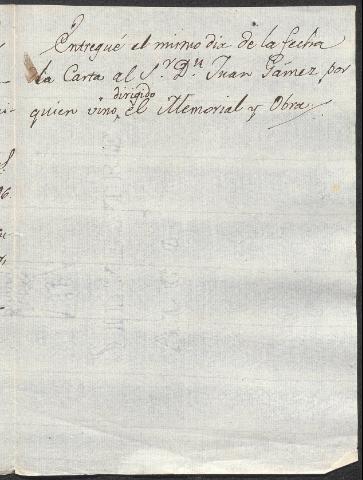 Entregué el mismo dia de la fecha
la Carta al S.r D.n Juan Gámez, por
dirigido
quien vino, el Memorial y Obra.